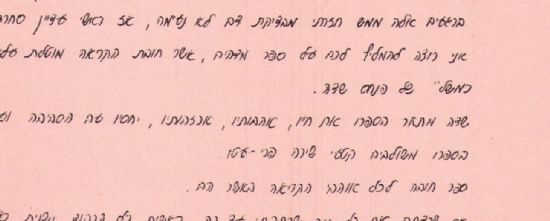 ברגעים אלה ממש חזרתי מבדיקת דם לא נעימה, אז ראשי עדיין סחר
אני רוצה להמליץ לכם על ספר מדהים, אשר חובת הקריאה מוטלת על
כמשל" של פנחס שדה.
שדה מתאר בספרו את חייו, אהבותיו, אכזבותיו, יחסיו עם הסביבה וע
בספרו משולבים קטעי שירה פרי-עטו.
ספר חובה לכל אוהבי הקריאה באשר הם.